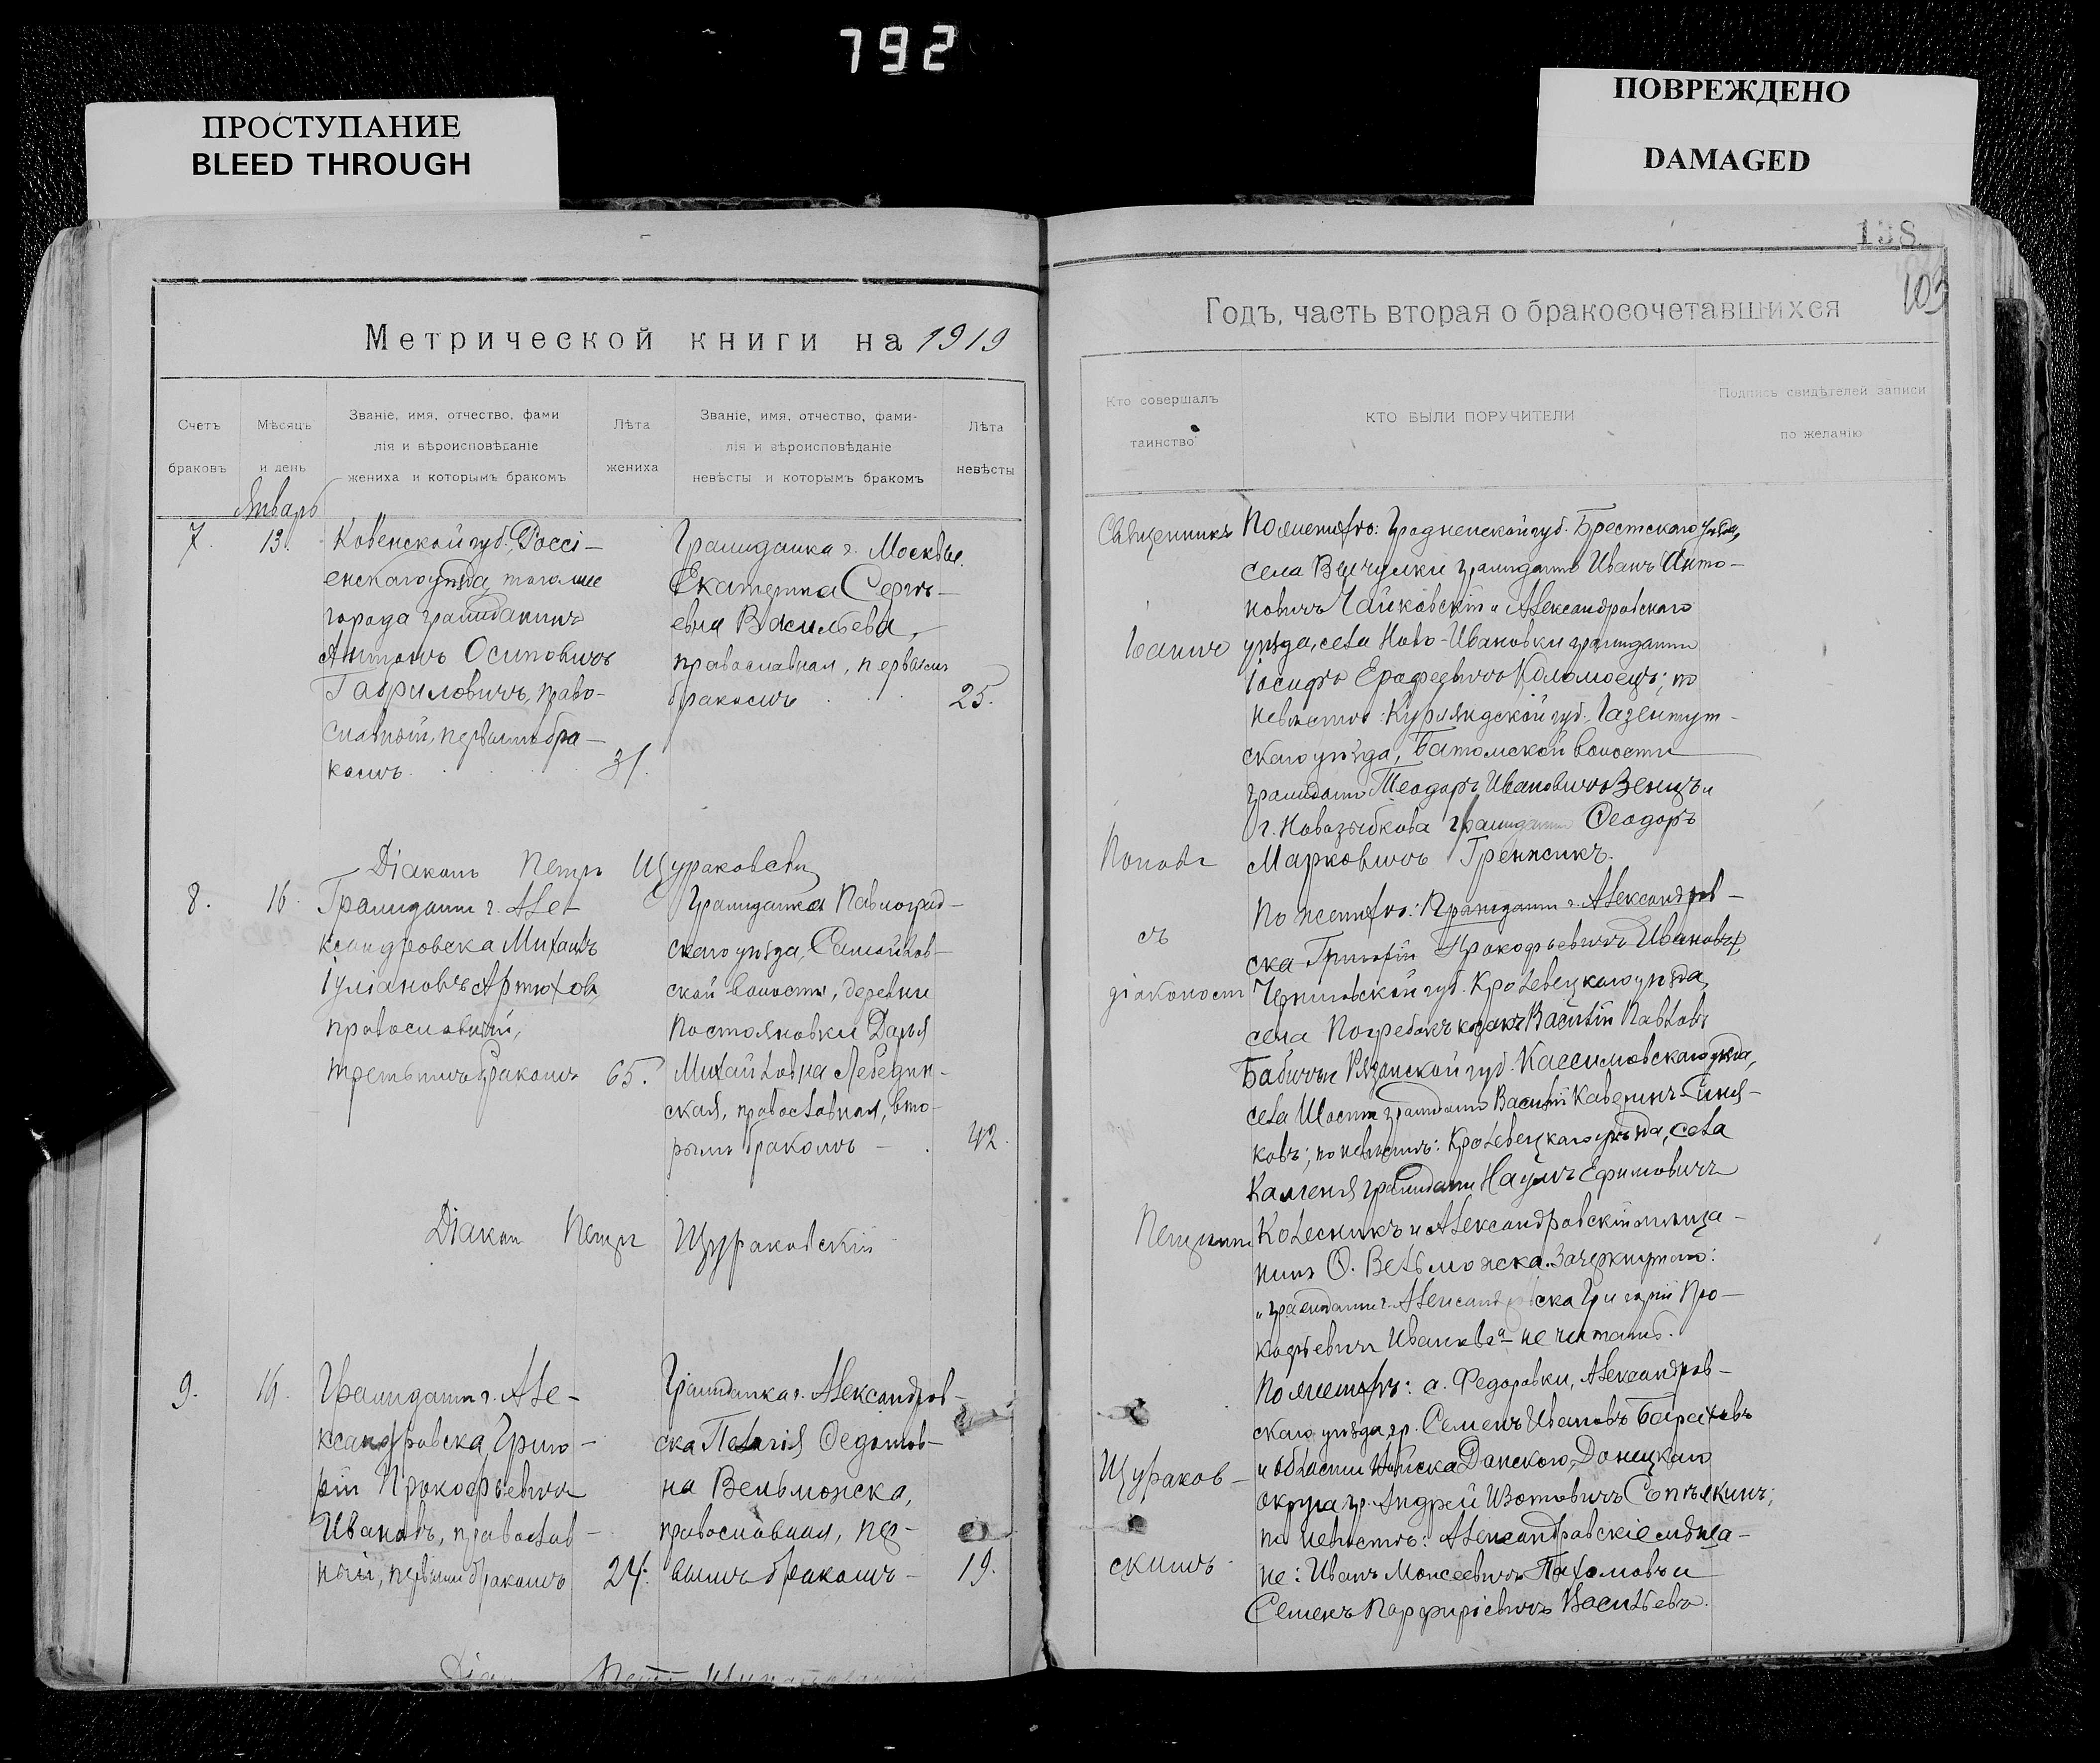 792
ПРОСТУПАНИЕ
BLEED THROUGH
ПОВРЕЖДЕНО
DAMAGED
138
103
Метрической книги на 1919
Счетъ браковъ
Мѣсяцъ и день
Званіе, имя, отчество, фами
лія и вѣроисповѣданіе
жениха и которымъ бракомъ
Лѣта жениха
Званіе, имя, отчество, фами-
лія и вѣроисповѣданіе
невѣсты и которымъ бракомъ
Лѣта невѣсты
Январь
7. 13.
Ковенской губ. Россі-
енскаго уѣзда, того же
города гражданинъ
Антонъ Осиповичъ
Гавриловичъ, право-
славный, первымъ бра-
комъ 31.
Гражданка г. Москвы
Екатерина Сергѣ-
евна Васильева,
православная, первымъ
бракомъ 25.
Діаконъ Петръ Щураковскій
8. 16.
Гражданинъ г. Але-
ксандровска Михаилъ
Іуліановъ Артюховъ
православный,
третьимъ бракомъ 65.
Гражданка Павлоград-
скаго уѣзда, Самойлов-
ской волости, деревни
Постояновки Дарья
Михайловна Лебедин-
ская, православная, вто-
рымъ бракомъ - 42.
Діакон Петръ Щураковскій
9. 19.
Гражданинъ г. Але-
ксандровска, Григо-
рій Прокофьевичъ
Ивановъ, православ-
ный, первымъ бракомъ 24.
Гражданка г. Александров-
ска Пелагія Федотов-
на Вельможска,
православная, пер-
вымъ бракомъ - 19.
Годъ, часть вторая о бракосочетавшихся
Кто совершалъ
таинство
КТО БЫЛИ ПОРУЧИТЕЛИ
Подпись свидѣтелей записи
по желанію
Священникъ
Іоаннъ
Поповъ
съ
діакономъ
Петромъ
Щураков-
скимъ
По женихѣ: Гродненской губ. Брестскаго уѣзда,
села гражданинъ Иванъ Анто-
новичъ Чайковскій и Александровскаго
уѣзда, села Ново-Ивановки гражданинъ
Іосифъ Ерофеевичъ Коломоецъ; по
невѣстѣ: Курляндской губ.
скаго уѣзда, волости
гражданинъ Теодоръ Ивановичъ Зенцъ и
г. Новозыбкова гражданинъ Феодоръ
Марковичъ
По женихѣ: Гражданинъ г. Александров-
ска Григорій Прокофьевичъ Ивановъ,
Черниговской губ. Кролевецкаго уѣзда,
села Погребокъ козакъ Василій Павловъ
Бабичъ и Рязанской губ. Кассимовскаго уѣзда,
села гражданинъ Василій Каверинъ-Синя-
ковъ; по невѣстѣ: Кролевецкаго уѣзда, села
Каменя гражданинъ Наумъ Ефимовичъ
Колесникъ и Александровскій мѣща-
нинъ Ѳ. Вельможска. Зачеркнутое:
„гражданинъ г. Александровска Григорій Про-
кофьевичъ Ивановъ" - не читать.
По женихѣ: с. Федоровки, Александров-
скаго уѣзда гр. Семенъ Ивановъ
и области Войска Донского, Донецкаго
округа гр. Андрей Изотовичъ
по невѣстѣ: Александровскіе мѣща-
не: Иванъ Моисеевичъ Пахомовъ и
Семенъ Порфиріевичъ Васильевъ.